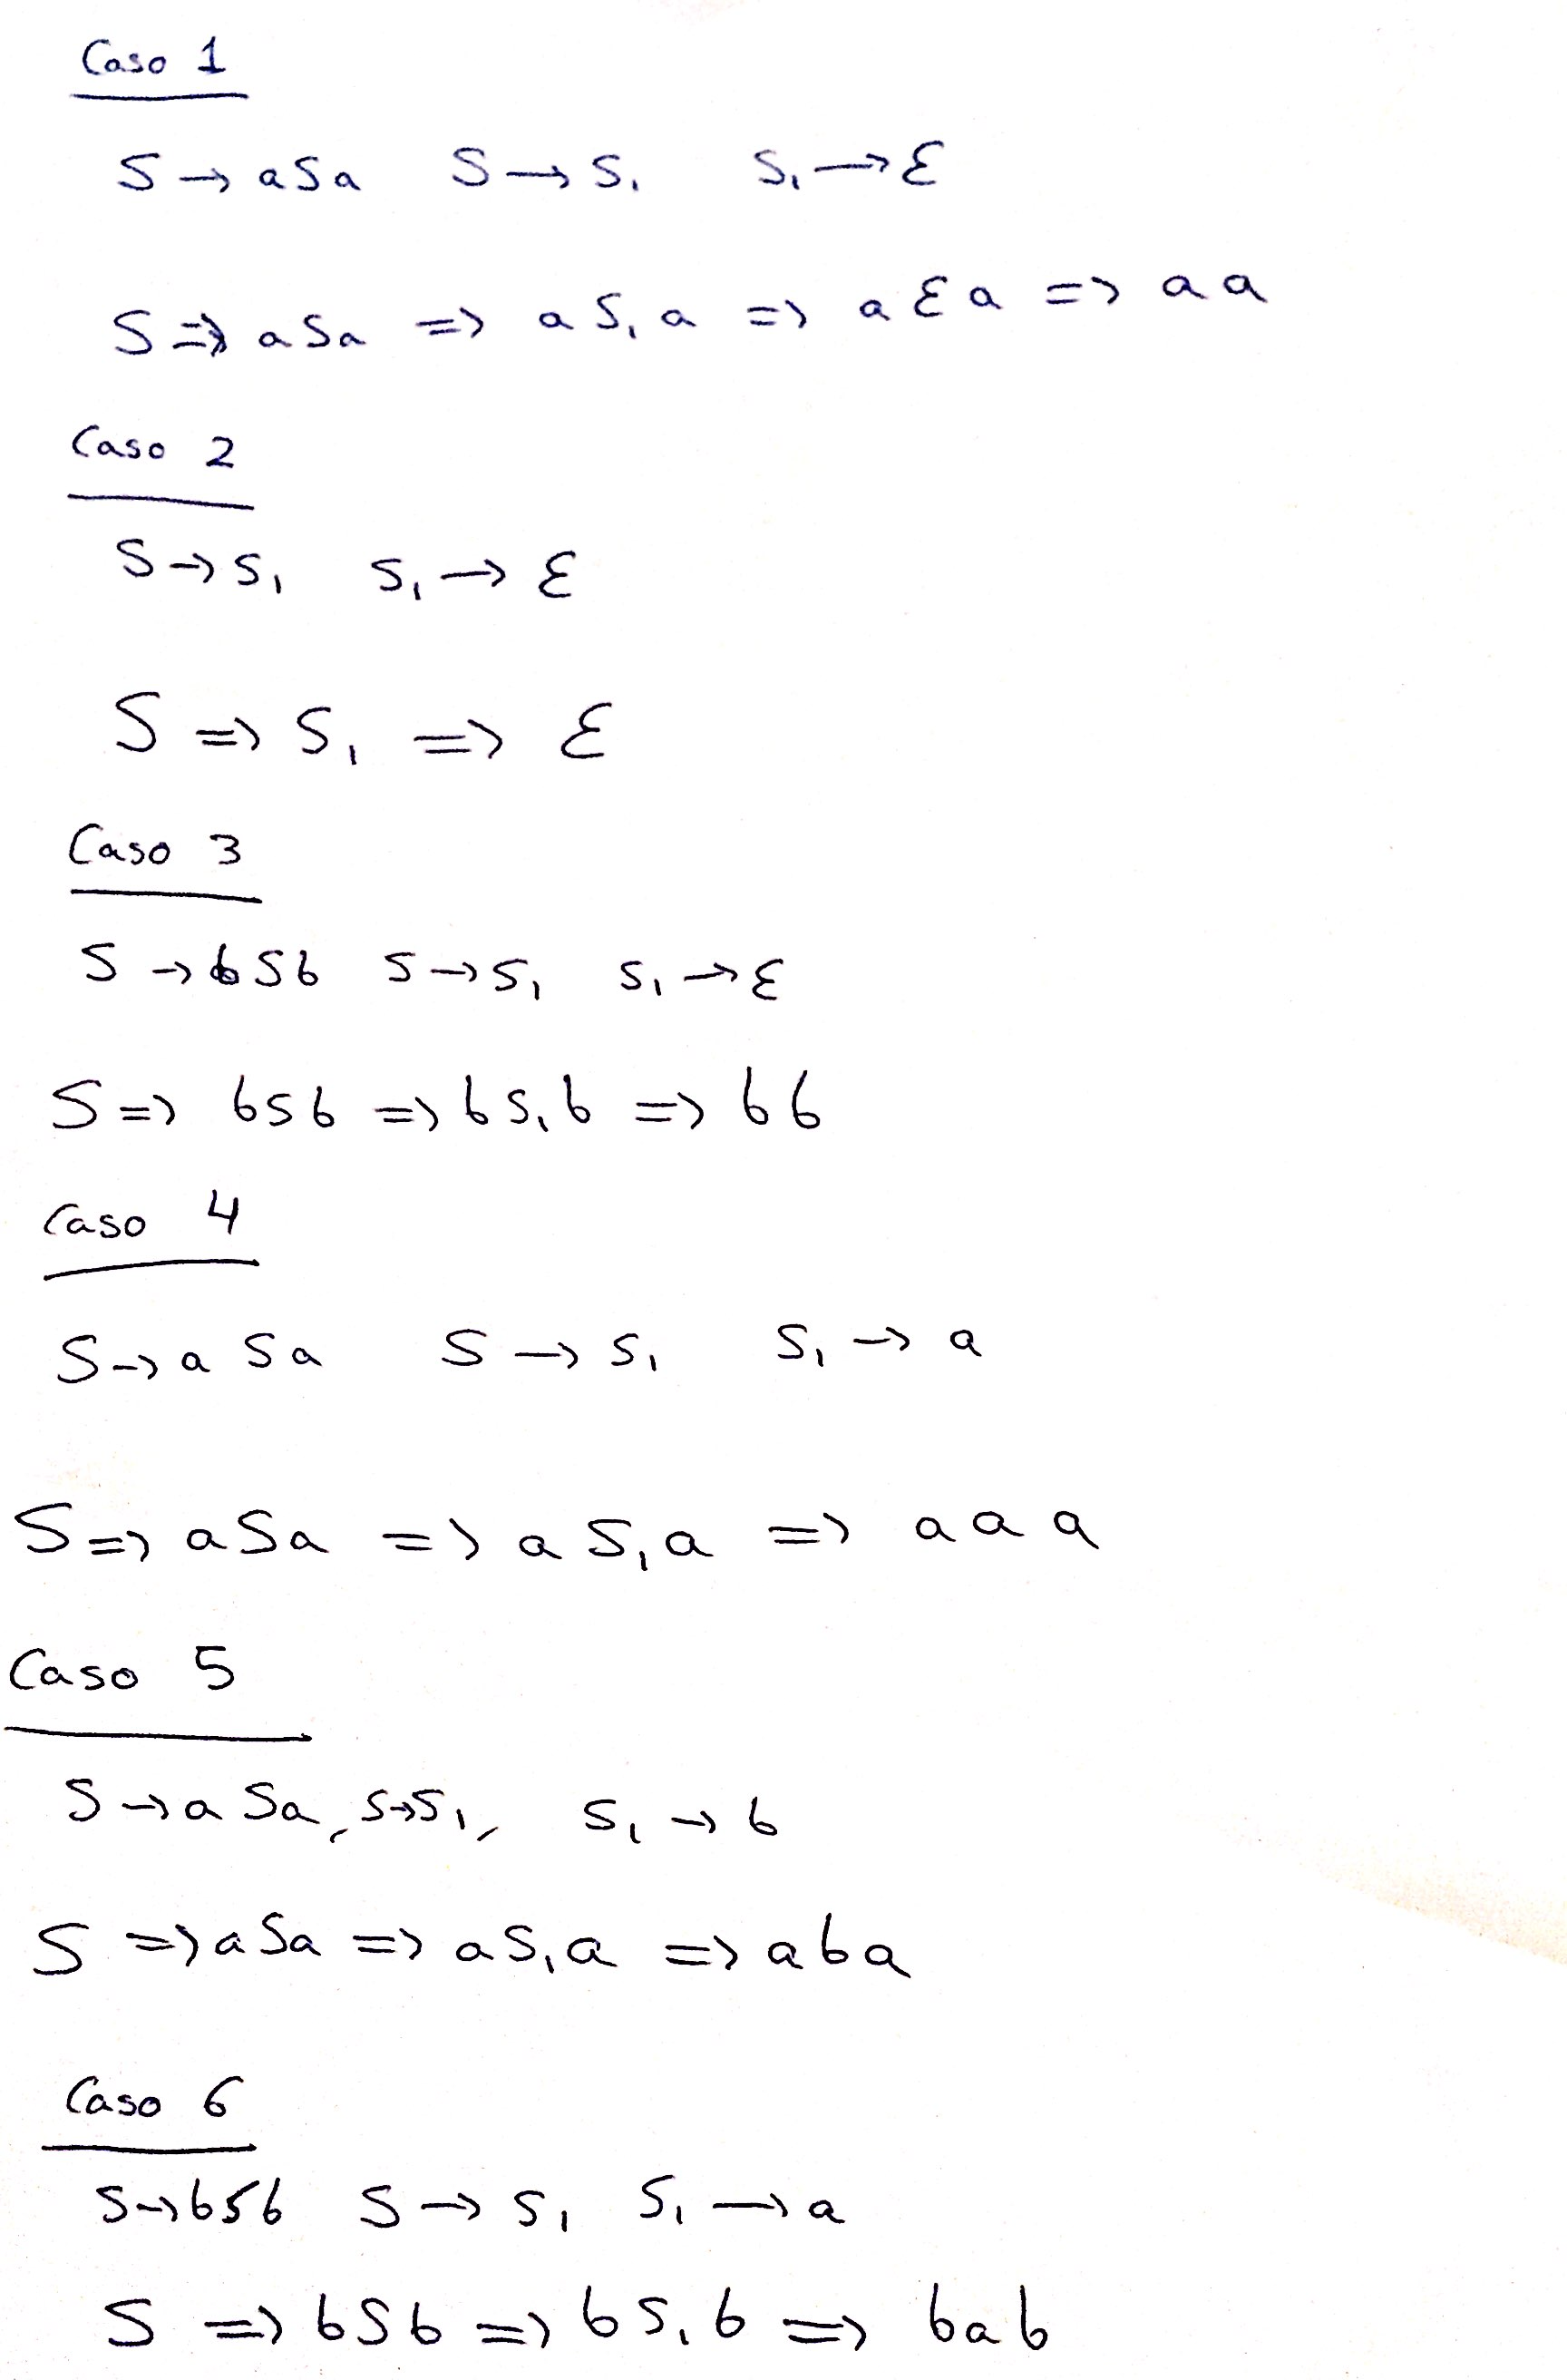 Caso 1
S → aSa S → S₁ S₁ → ε
S ⇒ aSa ⇒ aS₁a ⇒ aεa ⇒ aa
Caso 2
S → S₁ S₁ → ε
S ⇒ S₁ ⇒ ε
Caso 3
S → bSb S → S₁ S₁ → ε
S ⇒ bSb ⇒ bS₁b ⇒ bb
Caso 4
S → aSa S → S₁ S₁ → a
S ⇒ aSa ⇒ aS₁a ⇒ aaa
Caso 5
S → aSa, S → S₁, S₁ → b
S ⇒ aSa ⇒ aS₁a ⇒ aba
Caso 6
S → bSb S → S₁ S₁ → a
S ⇒ bSb ⇒ bS₁b ⇒ bab